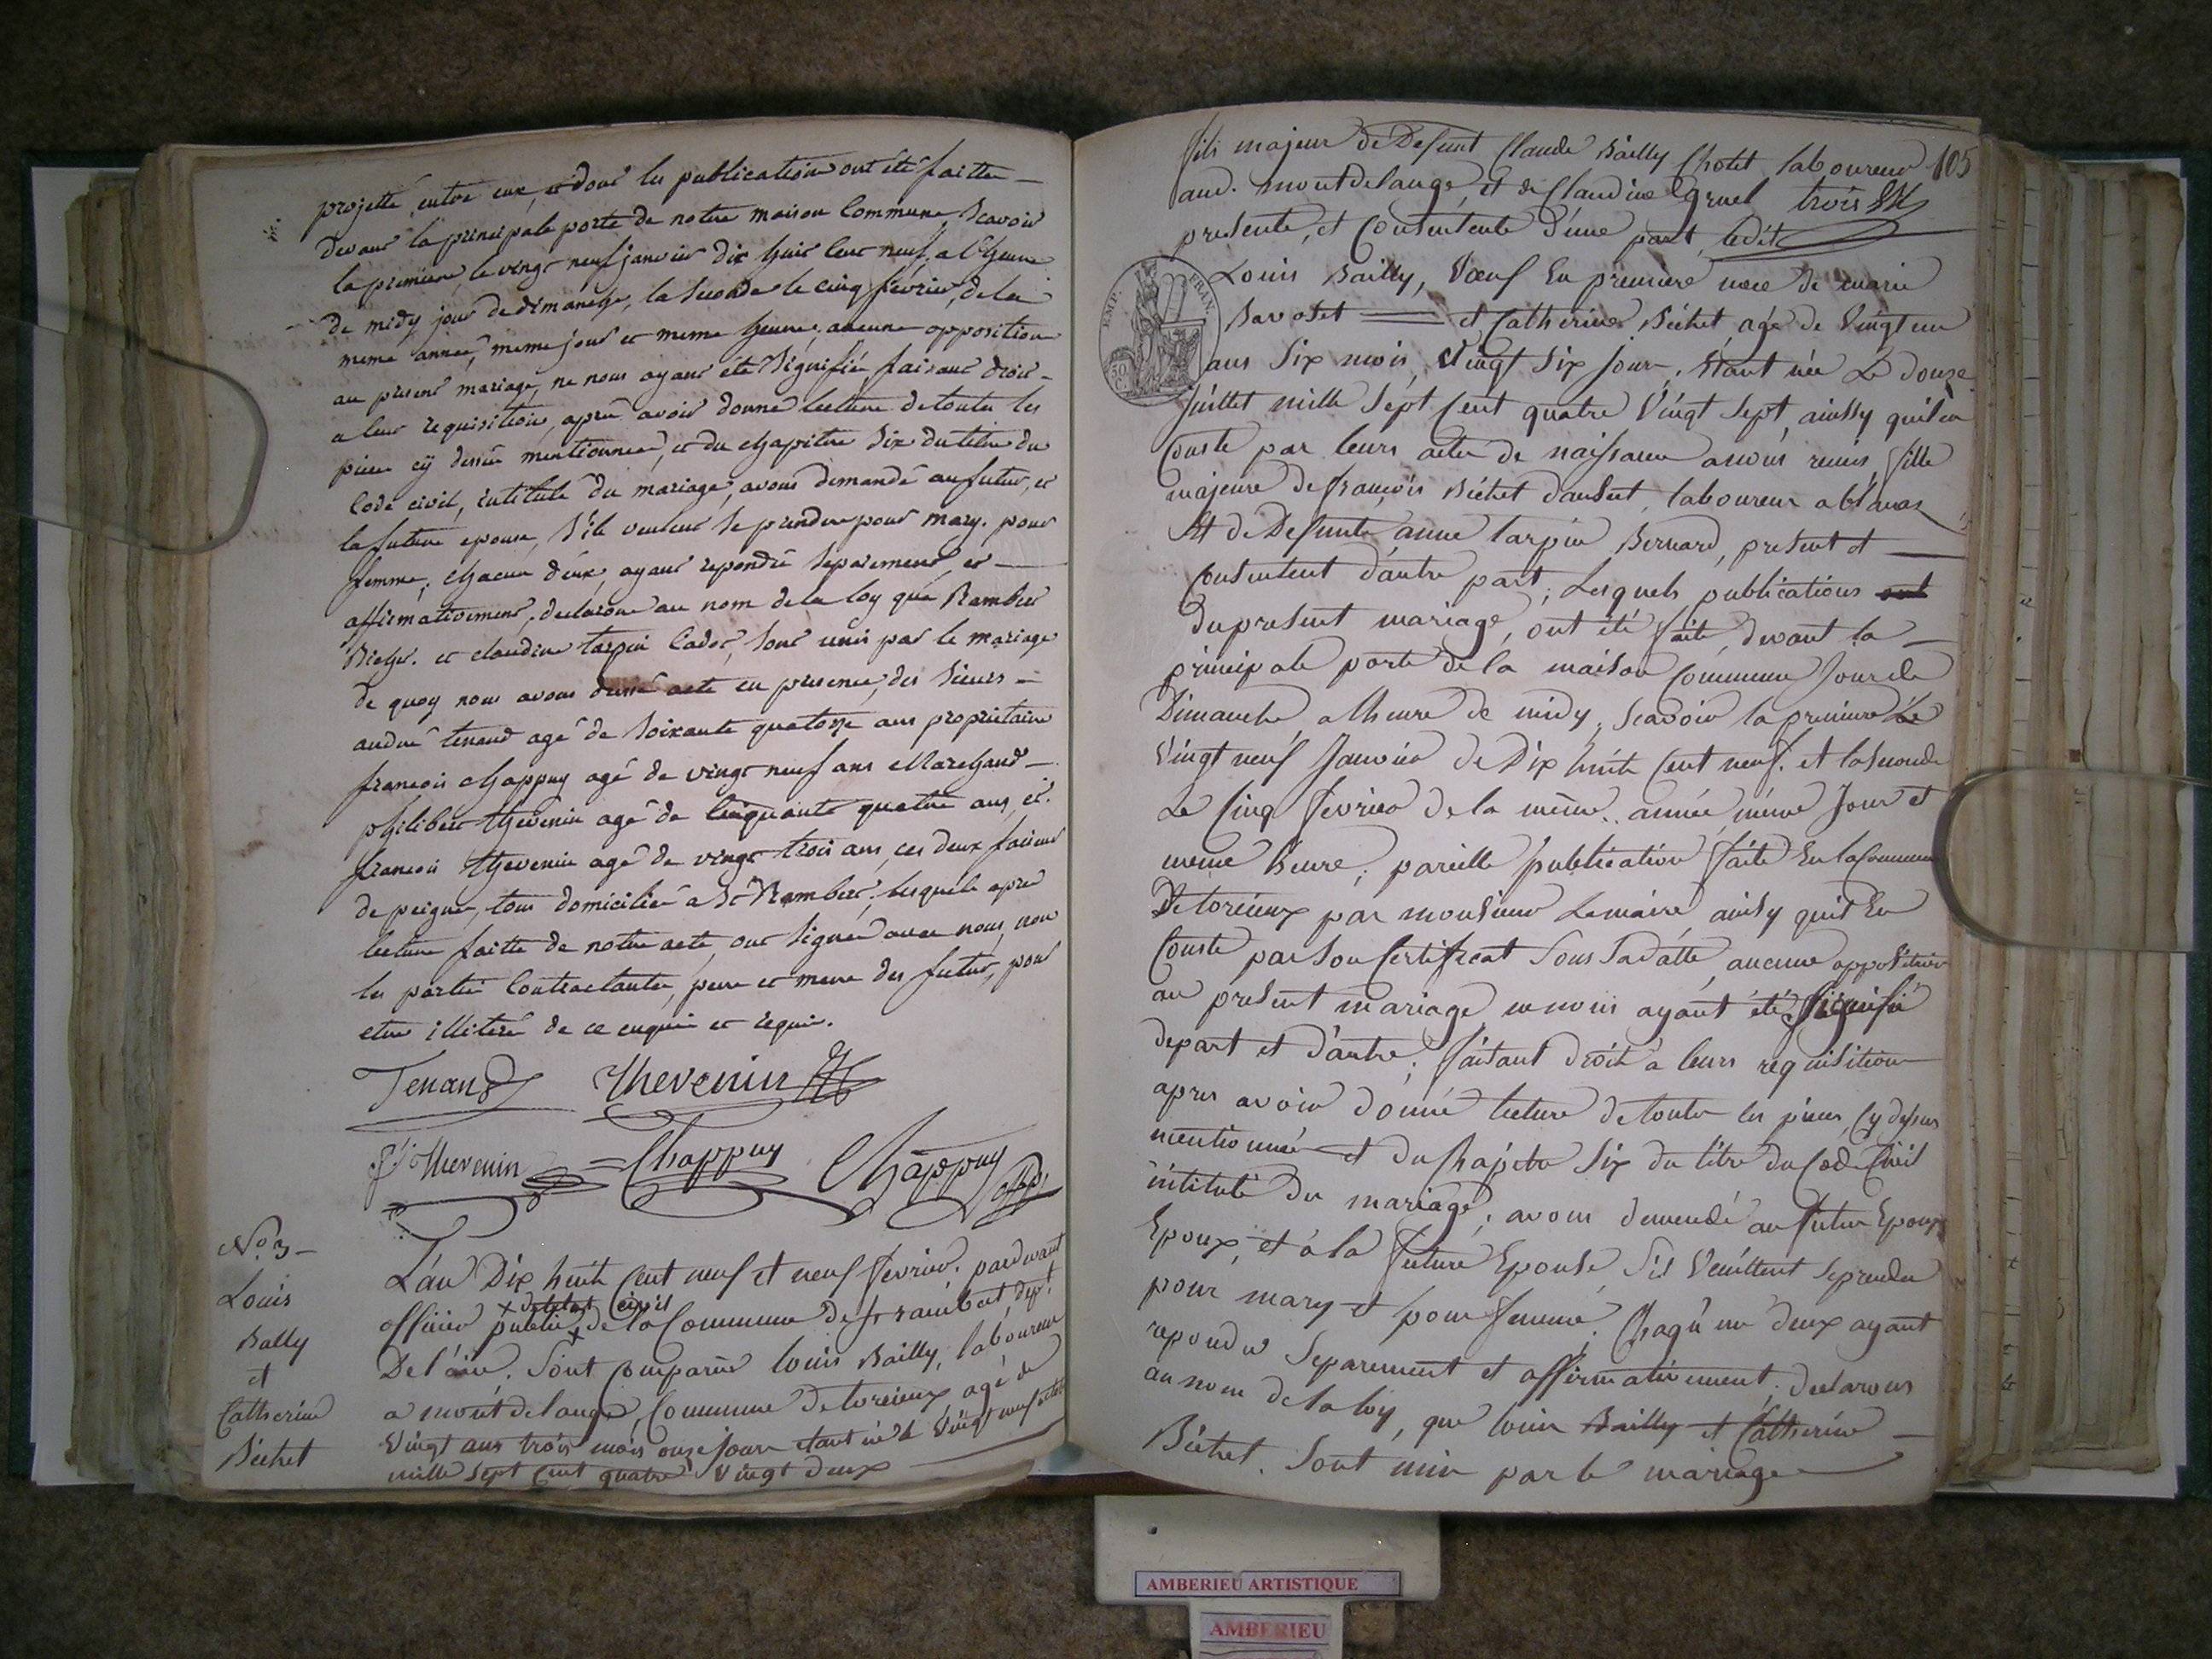 projetté entre eux, et dont les publications ont été faittes —
devant la principale porte de notre maison Commune, Scavoir
la premiere, le vingt neuf janvier dix huit cent neuf, a l'heure
de midy jour de dimanche, la Seconde le cinq février, de la
meme année, meme jour et meme heure, aucune opposition
au present mariage, ne nous ayant été Signifiée, faisant droit —
a leur requisition, apres avoir donné lecture de toutes les
pieces cy dessus mentionnées, et du chapitre Six du titre du
Code civil, intitulé du mariage, avons demandé au futur, et
la future epouse, S'ils veulent Se prendre pour mary. pour
femme; chacun d'eux, ayant repondû Separement, et —
affirmativement, declarons au nom de la loy que Rambert
Bichet. et claudine tarpin Cador, Sont unis par le mariage
de quoy nous avons dressé acte en presence, des Sieurs —
andré tenand agé de Soixante quatorze ans proprietaire
francois chappuy agé de vingt neuf ans Marchand —
philibert thevenin agé de Cinquante quatre ans, et.
francois thevenin agé de vingt trois ans, ces deux faiseurs
de peignes, tous domiciliés a St Rambert; lesquels apres
lecture faitte de notre acte, ont Signés avec nous, non
les parties Contractantes, pere et mere des futurs, pour
etre illiterés de ce enquis et requis.
Tenand Thevenin
fs Thevenin Chappuy Chappuy
No. 3 —
Louis
Bally
et
Catherine
Béchet
L'an Dix huit Cent neuf et neuf fevrier. pardevant
x de l'etat Civil
officier public x de la Commune de St rambert, dept.
De l'ain. Sont Comparus louis Bailly, laboureur
a mont de lange, Commune de torcieux, agé de
Vingt ans trois mois onze jours etant né le Vingt neuf
mille Sept Cent quatre Vingt deux
105
fils majeur de Defunt Claude Bailly Chotet laboureur
aud. mont de lange, et de Claudine Gruel trois
presente, et Consentente d'une part, ledit
EMP. FRAN.
50 C.
Louis Bailly, Veuf En premiere noce de marie
Savotet — et Catherine Béchet, agée de Vingt un
ans Six mois, Vingt Six jours, Etant née Le douze
Juillet mille Sept Cent quatre Vingt Sept, ainssy quil en
Conste par leurs actes de naissance a nous remis, fille
majeure de françois Béchet dauset, laboureur a blanas
Et de Defunte anne tarpin Bernard, present et —
Consentent d'autre part; Lesquels publications ont
du present mariage, ont été faite, devant la —
principale porte de la maison Commune Jour de
Dimanche a lheure de midy, Scavoir la premiere Le
Vingt neuf Janvier de Dix huit Cent neuf. et la Seconde
Le Cinq fevrier de la même.. année, même Jour et
meme heure; pareille publication faite En la Commune
De torcieux par monsieur Lemaire ainsy quil En
Conste par Son Certificat Sous Sa datte, aucune opposition
au present mariage ne nous ayant été Signifié
depart et d'autre; faisant droit à leurs requisition
apres avoir donné lecture de toutes les pieces, Cy dessus
mentionnée et du Chapitre Six du titre du Code Civil
intitulé du mariage; avons demendé au futur Epoux
Epoux, et à la future Epouse, Sil Veuillent Se prendre
pour mary et pour femme; Chaqu'un deux ayant
repondu Separement et affirmativement; declarons
au nom de la loy, que louis Bailly et Catherine —
Béchet. Sont unis par le mariage —
AMBERIEU ARTISTIQUE
AMBERIEU